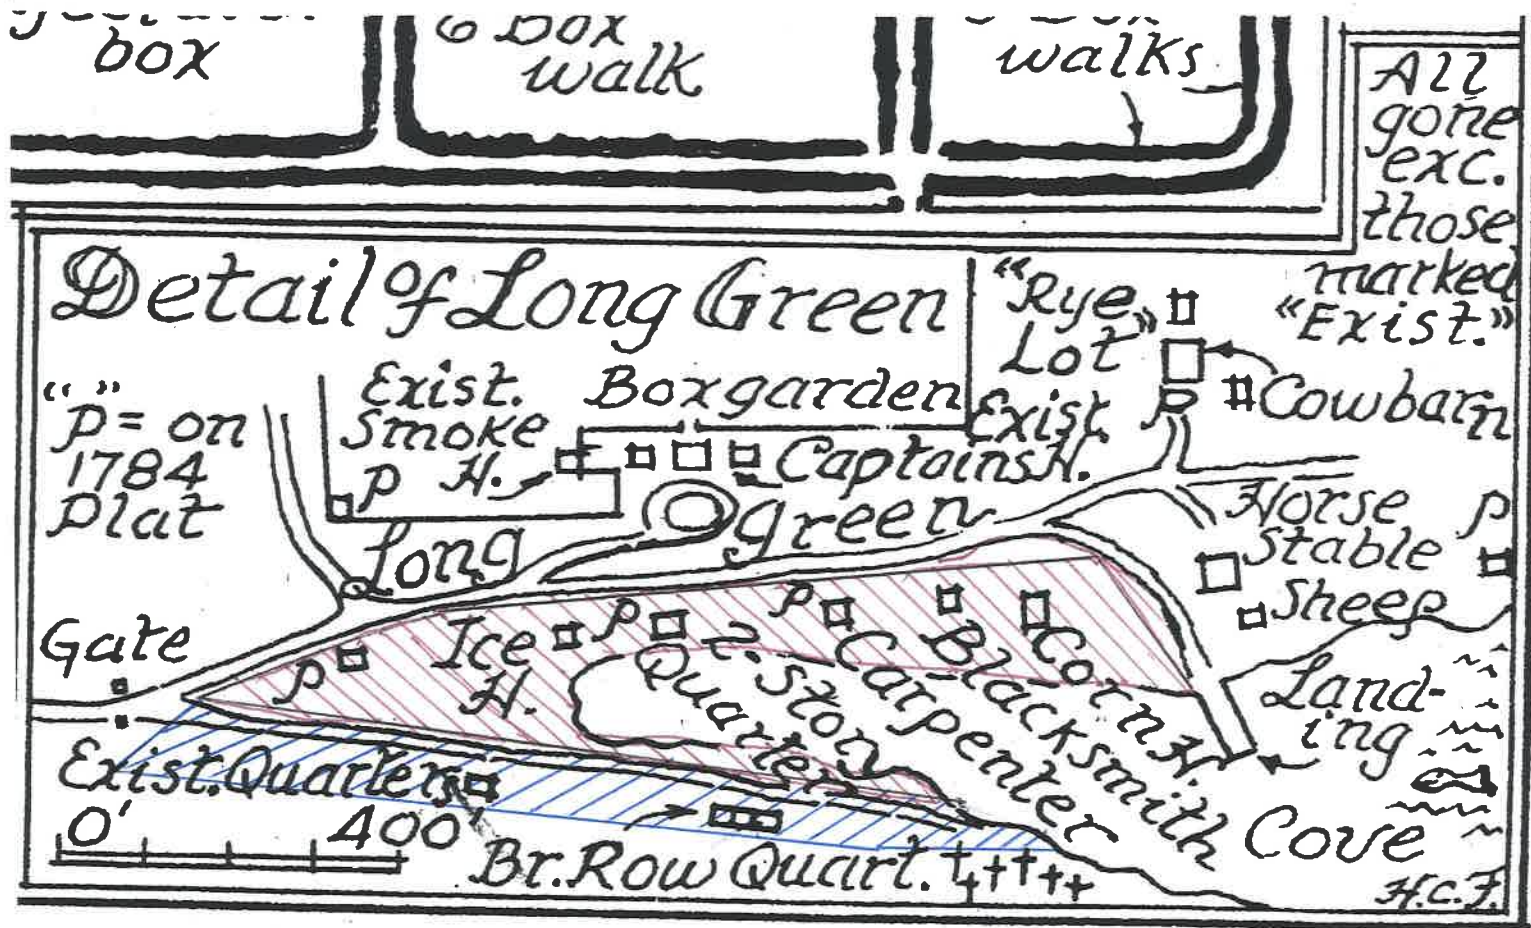 box
6 Box
walk
Box
walks
All
gone
exc.
those
marked
"Exist."
Detail of Long Green
"Rye
Lot"
"P" = on
1784
Plat
Exist.
Smoke
H.
P
Boxgarden
Exist.
Captains H.
P
Cowbarn
Long
green
Horse
Stable
P
Sheep
Gate
P
Ice
H.
P
2-Story
Quarters
P
Carpenter
Blacksmith
Corn H.
Land-
ing
Exist. Quarters
0' 400
Br. Row Quart.
Cove
H.C.F.